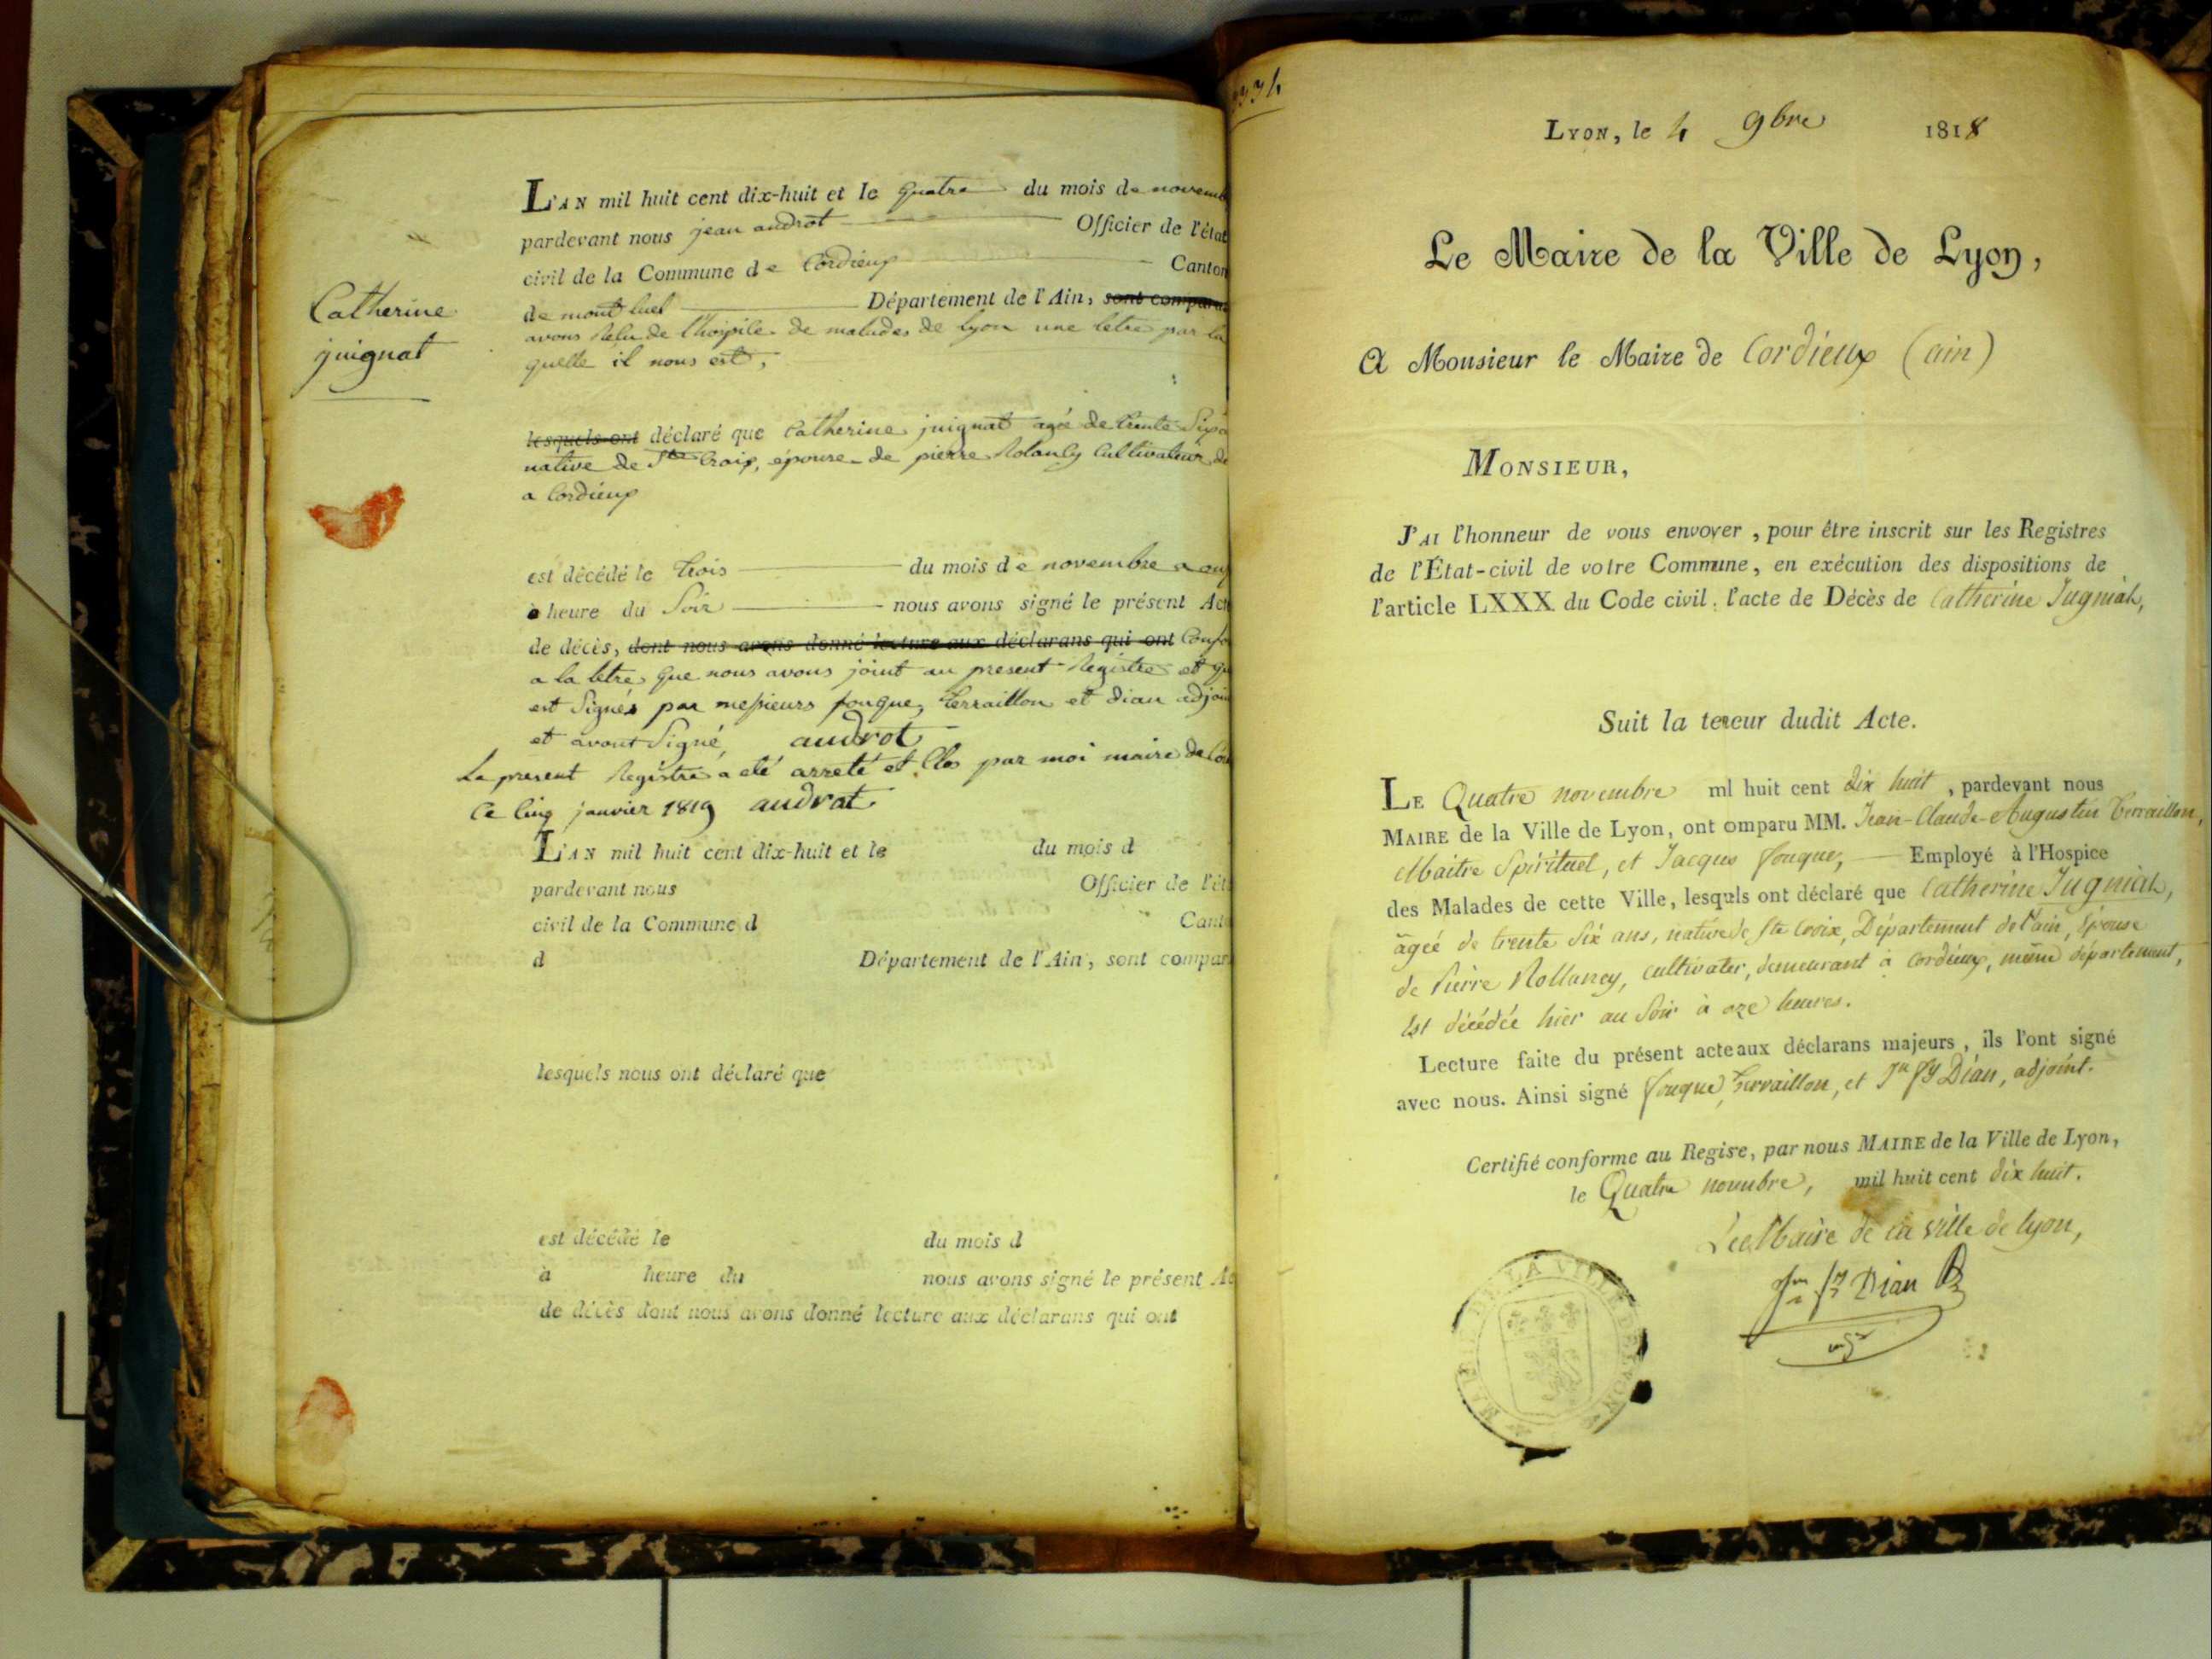 Catherine
juignat
L'AN mil huit cent dix-huit et le quatre du mois de novem
pardevant nous jean audrot Officier de l'état
civil de la Commune de Cordieux Canton
de mont luel Département de l'Ain, sont compar
avons Relu de l'hospile de malades de Lyon une letre par la
quelle il nous est,
lesquels ont déclaré que Catherine juignat agée de trente Six
native de Ste Croix, épouse de pierre Rolanly Cultivateur de
a Cordieux
est décédé le trois du mois de novembre a
heure du Soir nous avons signé le présent Act
de décès, dont nous avons donné lecture aux déclarans qui ont Confo
a la letre que nous avons joint au present Registre et
est Signés par messieurs fouque, terraillon et dian adjoin
et avont Signé, audrot
Le present Registre a eté arreté et Clos par moi maire de
Ce Cinq janvier 1819 audrot
L'AN mil huit cent dix-huit et le du mois d
pardevant nous Officier de l'ét
civil de la Commune d Cant
d Département de l'Ain, sont compar
lesquels nous ont déclaré que
est décédé le du mois d
à heure du nous avons signé le présent Ac
de décès dont nous avons donné lecture aux déclarans qui ont
LYON, le 4 9bre 1818
Le Maire de la Ville de Lyon,
A Monsieur le Maire de Cordieux (ain)
MONSIEUR,
J'AI l'honneur de vous envoyer, pour être inscrit sur les Registres
de l'État-civil de votre Commune, en exécution des dispositions de
l'article LXXX du Code civil, l'acte de Décès de Catherine Jugniat,
Suit la teneur dudit Acte.
LE Quatre novembre ml huit cent dix huit, pardevant nous
MAIRE de la Ville de Lyon, ont omparu MM. Jean-Claude-Augustin Terraillon,
Maitre Spirituel, et Jacques fouque, Employé à l'Hospice
des Malades de cette Ville, lesquls ont déclaré que Catherine Jugniat,
âgée de trente Six ans, native de Ste Croix, Département de l'ain, Epouse
de Pierre Rollancy, cultivater, demeurant à Cordieux, même département,
Est décédée hier au Soir à oze heures.
Lecture faite du présent acte aux déclarans majeurs, ils l'ont signé
avec nous. Ainsi signé fouque, Terraillon, et Jn fs Dian, adjoint.
Certifié conforme au Regisre, par nous MAIRE de la Ville de Lyon,
le Quatre novembre, mil huit cent dix huit.
Le Maire de la ville de Lyon,
Jn fs Dian
MAIRIE DE LA VILLE DE LYON